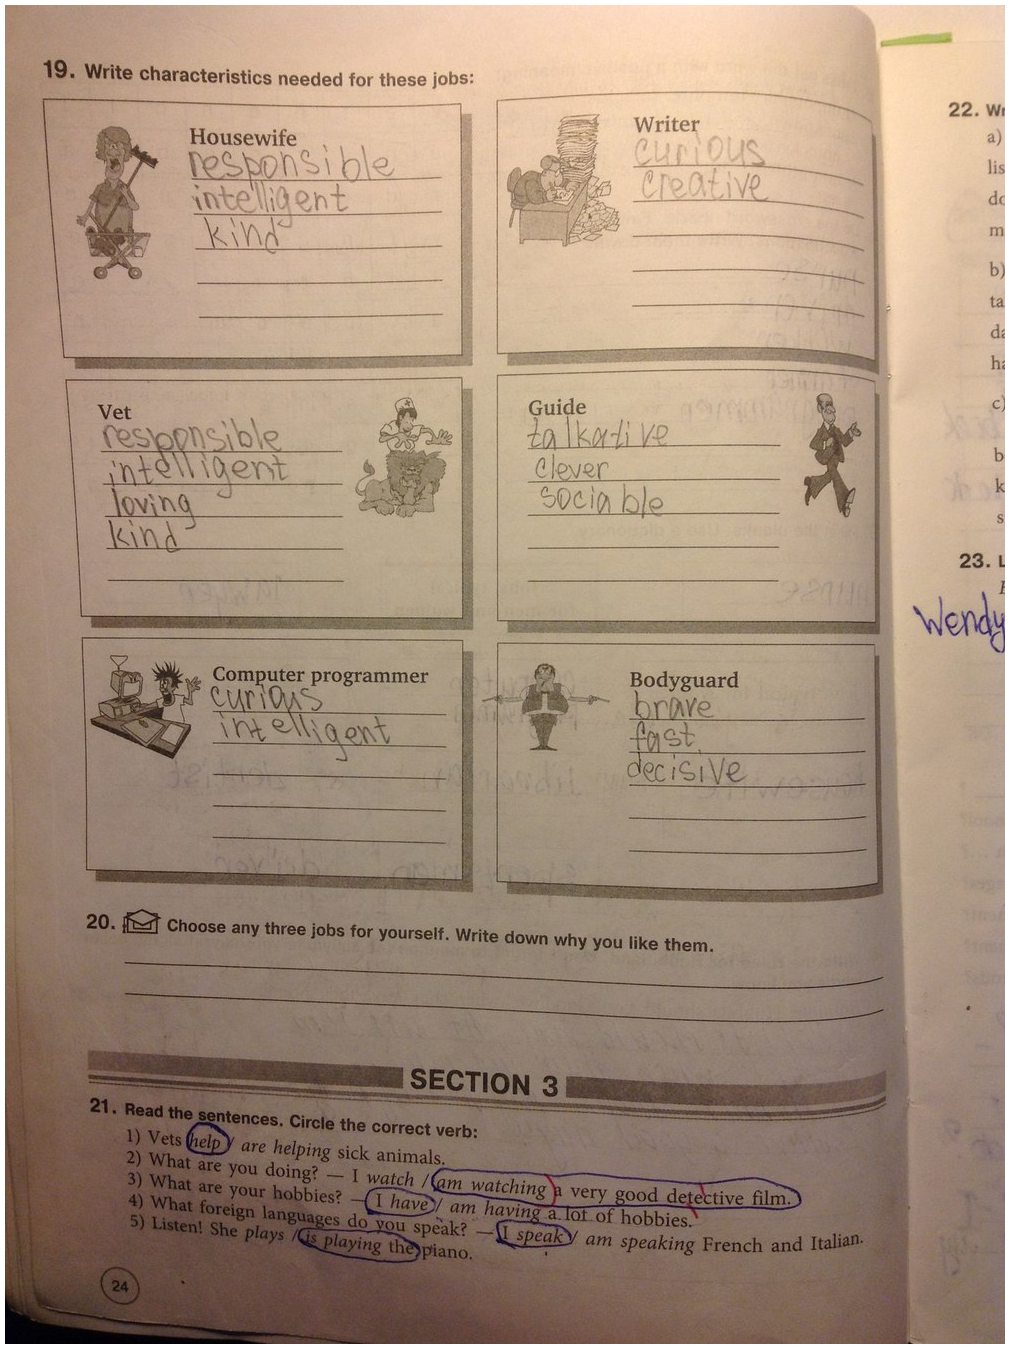 19. Write characteristics needed for these jobs:
Housewife
responsible
intelligent
kind
Writer
curious
creative
Vet
responsible
intelligent
loving
kind
Guide
talkative
clever
sociable
Computer programmer
curious
intelligent
Bodyguard
brave
fast
decisive
20. Choose any three jobs for yourself. Write down why you like them.
SECTION 3
21. Read the sentences. Circle the correct verb:
1) Vets help / are helping sick animals.
2) What are you doing? — I watch / am watching a very good detective film.
3) What are your hobbies? — I have / am having a lot of hobbies.
4) What foreign languages do you speak? — I speak / am speaking French and Italian.
5) Listen! She plays / is playing the piano.
24
22.
a)
b)
c)
23.
Wendy